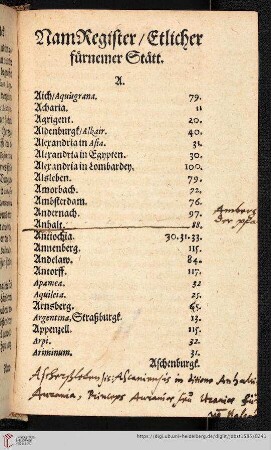 NamRegister/Etlicher
fürnemer Stätt.
A.
Aich/Aquisgrana. 79.
Acharia. 11
Agrigent. 20.
Aldenburgk/Alkair. 40.
Alexandria in Asia. 31.
Alexandria in Egypten. 30.
Alexandria in Lombardey. 100.
Alsleben. 79.
Amorbach. 72.
Ambsterdam. 76.
Andernach. 97.
Anhalt. 88.
Antiochia. 30.31.33.
Annenberg. 115.
Andelaw. 84.
Antorff. 117.
Apamea. 32
Aquileia. 25.
Arnsberg. 65.
Argentina, Straßburgk. 13.
Appenzell. 115.
Arpi. 32.
Ariminum. 31.
Aschenburgk.
https://digi.ub.uni-heidelberg.de/diglit/abst1585/0241